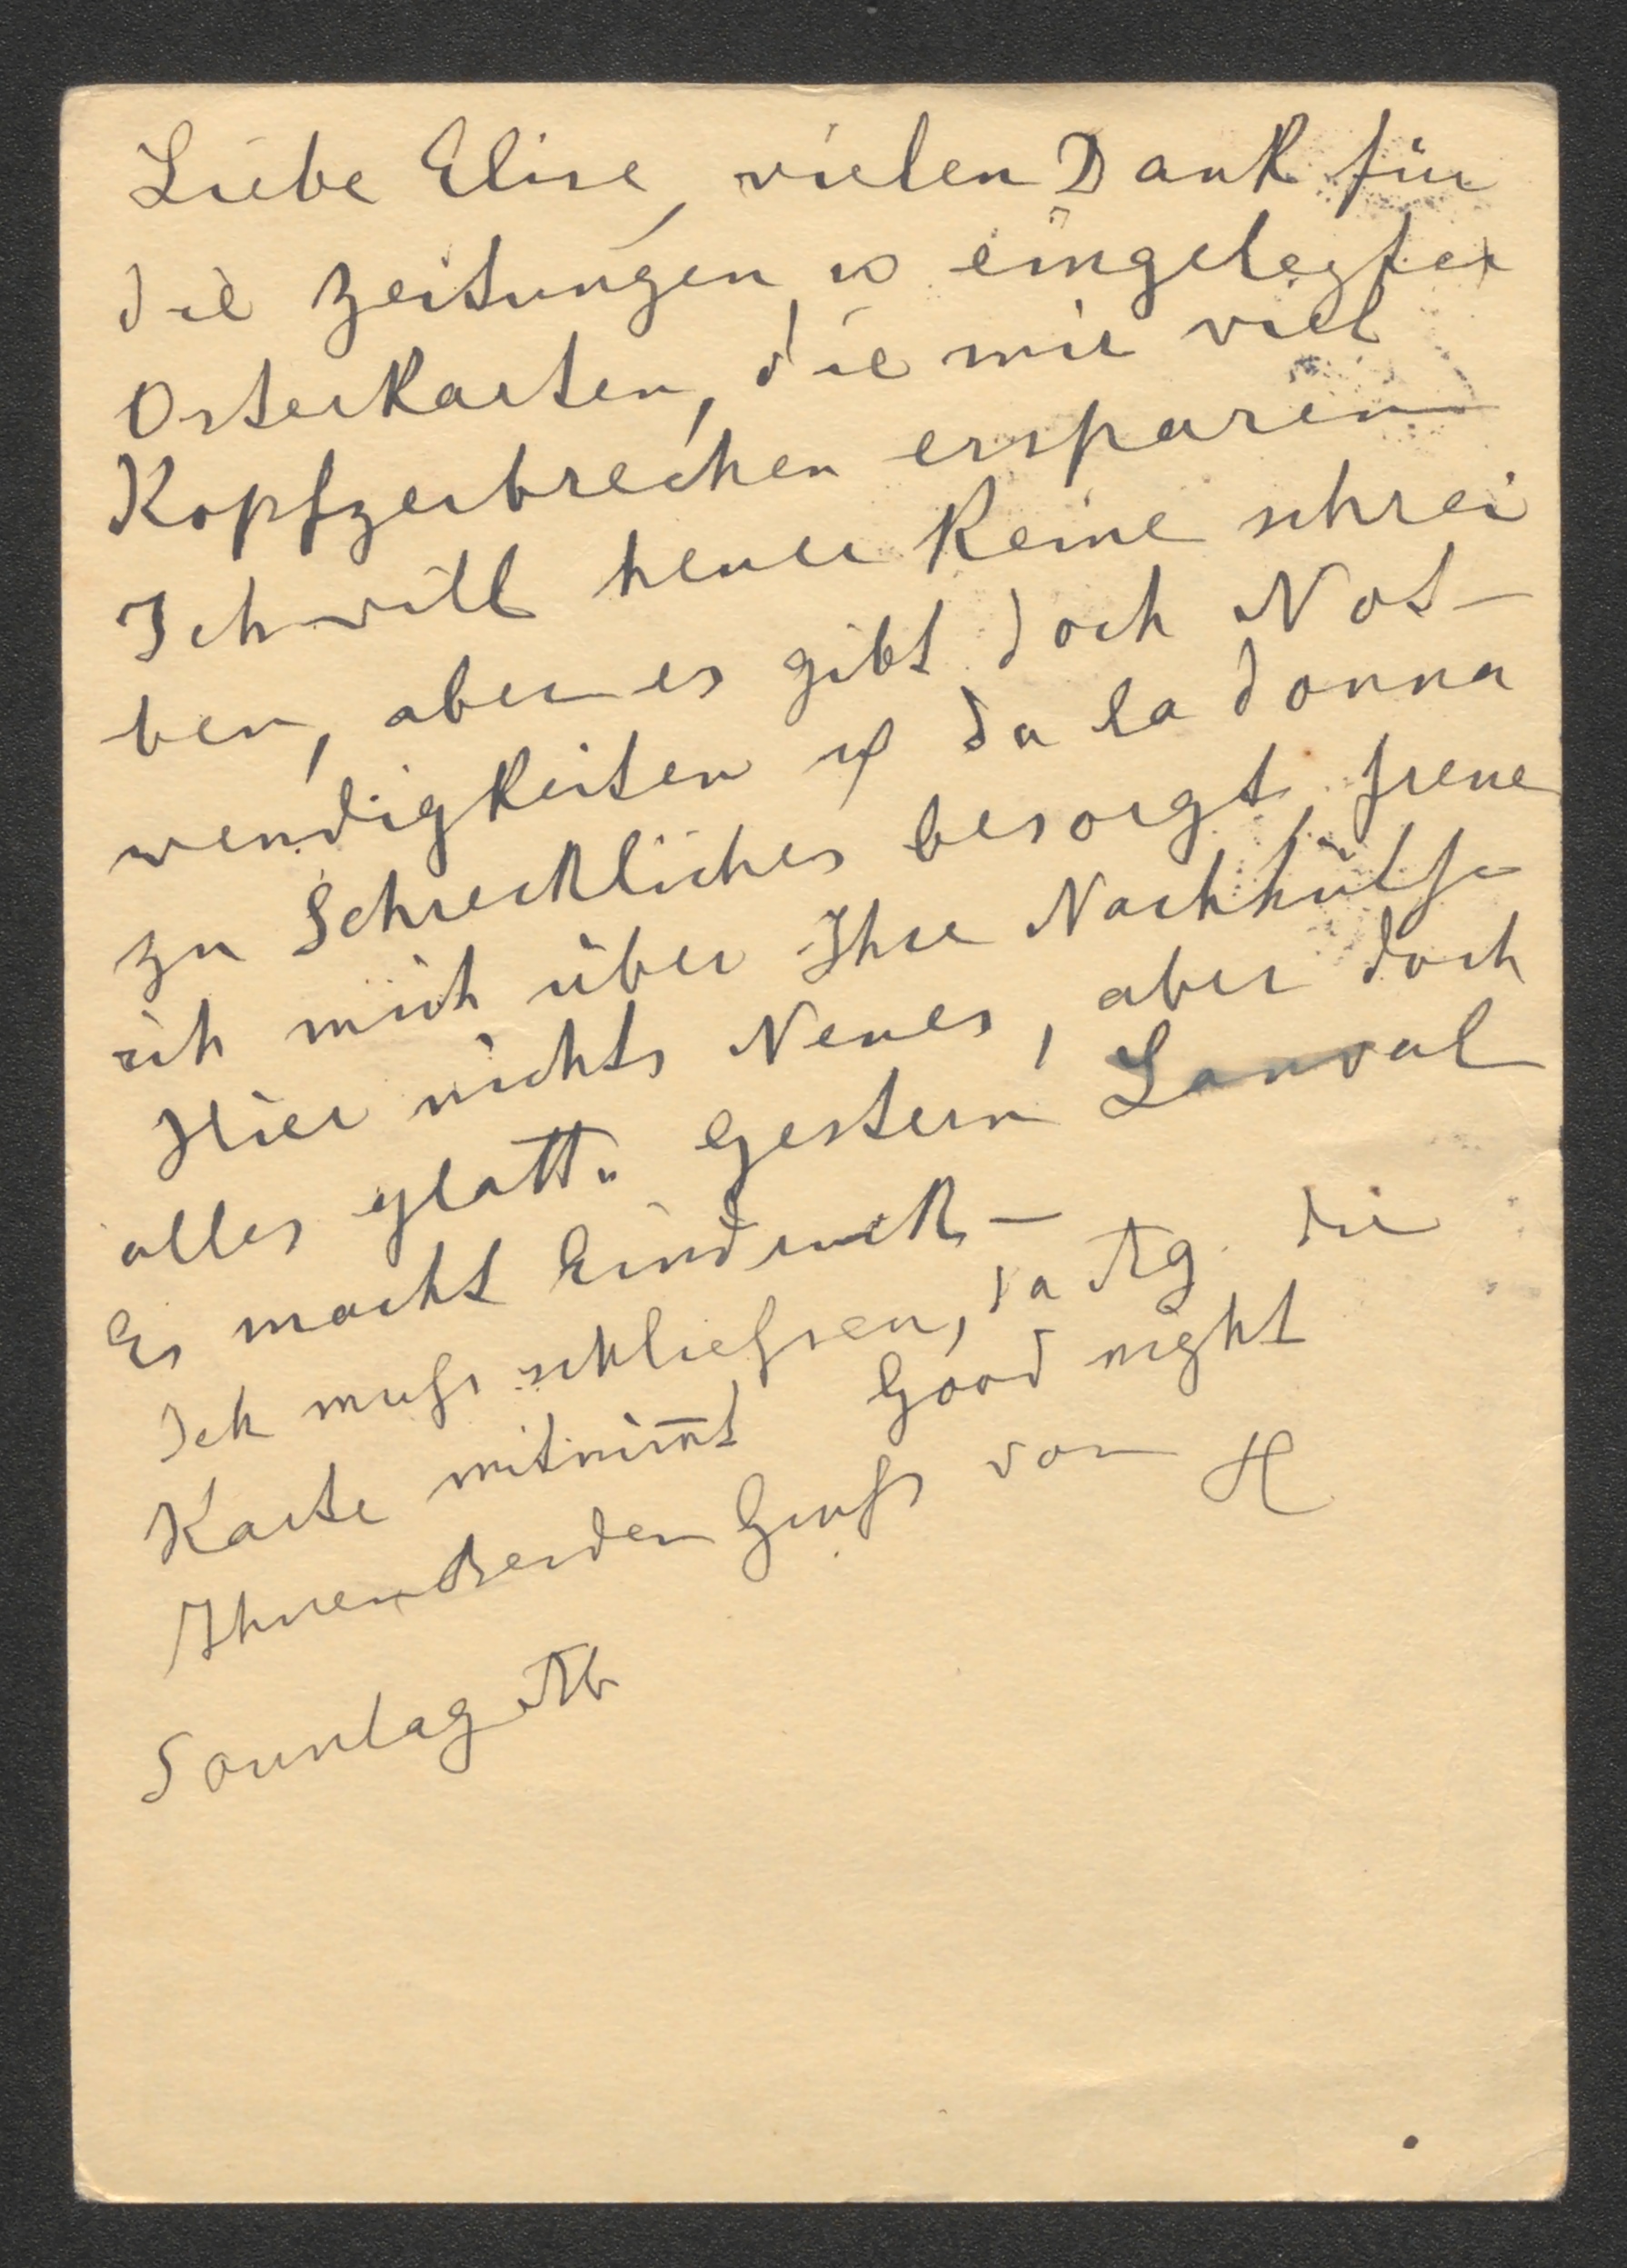 Liebe Elise, vielen Dank für
die Zeitungen u eingelegten
Osterkarten, die mir viel
Kopfzerbrechen ersparen
Ich will heuer keine schrei
ben, aber es gibt doch Not-
wendigkeiten u da la donna
zu Schreckliches besorgt, freue
ich mich über Ihre Nachhülfe
Hier nichts Neues, aber doch
alles glatt. Gestern Lanval
Es macht Eindruck –
Ich muß schließen, da Ag die
Karte mitnim̅t Good night
Ihnen Beiden Gruß von H
Sonntag Ab